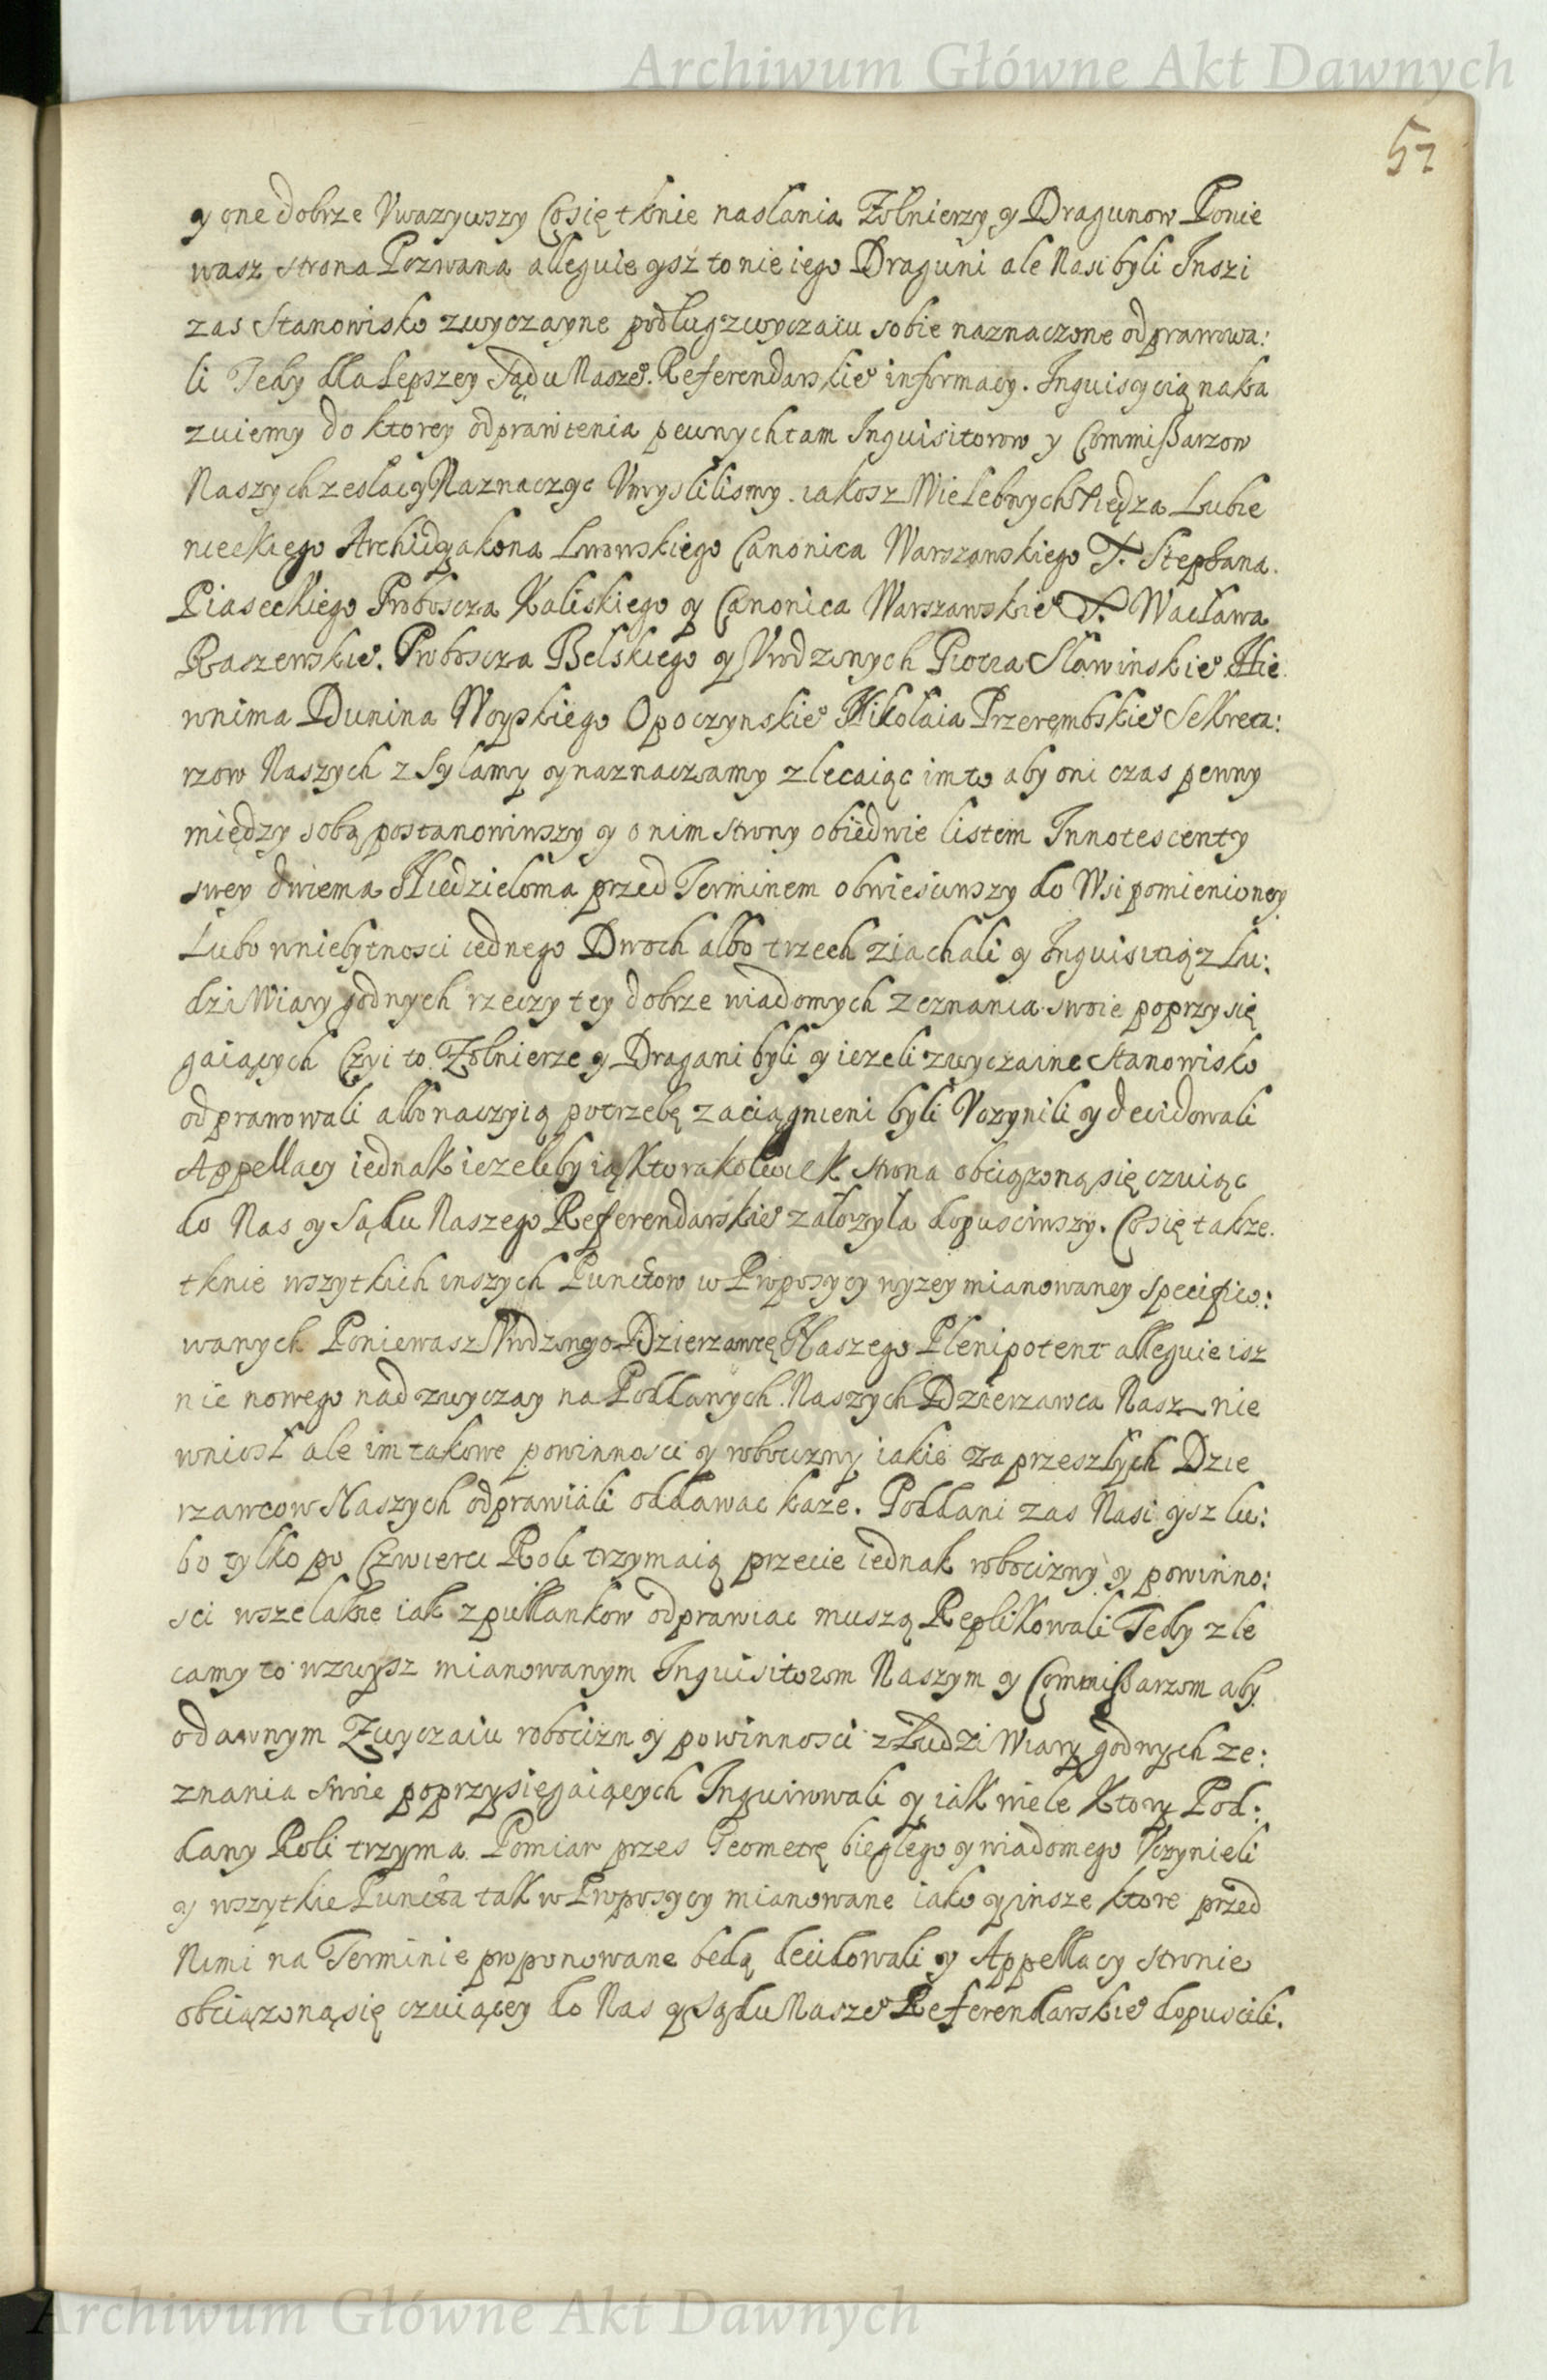 Archiwum Główne Akt Dawnych
57
y one dobrze Vwazywszy Co się tknie naslania Zołnierzy y Dragunow Ponie
wasz strona Pozwana alleguie ysz to nie iego Draguni ale Nasi byli Inszi
zas Stanowisko zwyczayne podług zwyczaiu sobie naznaczone odprawowa:
li Tedy dla lepszey Sądu Nasze°. Referendarskie° informacy. Inquisycią naka
zuiemy do ktorey odprawienia pewnych tam Inquisitorow y Commißarzow
Naszych zesłac y Naznaczyc Vmyslilismy. iakosz Wielebnych Xiędza Lubie
nieckiego Archidyakona Lwowskiego Canonica Warszawskiego X. Stephana.
Piaseckiego Proboscza Kaliskiego y Canonica Warszawskie° X. Wacława
Raszewskie°. Proboscza Belskiego y Vrodzonych Piotra Sławinskie° Hie
ronima Dunina Woyskiego Opoczynskie° Mikołaia Przerembskie° Sekreta:
rzow Naszych z Sylamy y naznaczamy zlecaiąc im to aby oni czas pewny
między sobą postanowiwszy y o nim strony obiedwie listem Innotescenty
swey dwiema Niedzieloma przed Terminem obwiesciwszy do Wsi pomienioney
Lubo w niebytnosci iednego Dwoch albo trzech ziachali y Inquisitią z Lu:
dzi Wiary godnych rzeczy tey dobrze wiadomych zeznania swoie poprzysię
gaiących Czyi to Zołnierze y Dragani byli y iezeli zwyczaine Stanowisko
odprawowali albo na czyią potrzebę zaciągnieni byli Vczynili y decidowali
Appellacy iednak iezeliby ią ktorakolwiek strona obciązoną się czuiąc
do Nas y Sądu Naszego Referendarskie° załozyła dopusciwszy. Co się takze.
tknie wszytkich inszych Punctow w Proposycy wyzey mianowaney specifico:
wanych Poniewasz Vrodzonego Dzierzawcę Naszego Plenipotent alleguie isz
nic nowego nad zwyczay na Poddanych Naszych Dzierzawca Nasz nie
wniosł ale im takowe powinnosci y robocizny iakie za przeszłych Dzie
rzawcow Naszych odprawiali oddawac kaze. Poddani zas Nasi ysz lu:
bo tylko po Czwierci Roli trzymaią przecie iednak robocizny y powinno:
sci wszelakie iak z pułłankow odprawiac muszą Replikowali Tedy zle
camy to wzwysz mianowanym Inquisitorom Naszym y Commißarzom aby
o dawnym Zwyczaiu robocizn y powinnosci z Ludzi Wiary godnych ze:
znania swoie poprzysiegaiących Inquirowali y iak wiele Ktory Pod:
dany Roli trzyma Pomiar przes Geometrę biegłego y wiadomego Vczynieli
y wszytkie Puncta tak w Proposycy mianowane iako y insze ktore przed
Nimi na Terminie proponowane będą decidowali y Appellacy stronie
obciązoną się czuiącey do Nas y Sądu Nasze° Referendarskie° dopuscili.
Archiwum Główne Akt Dawnych